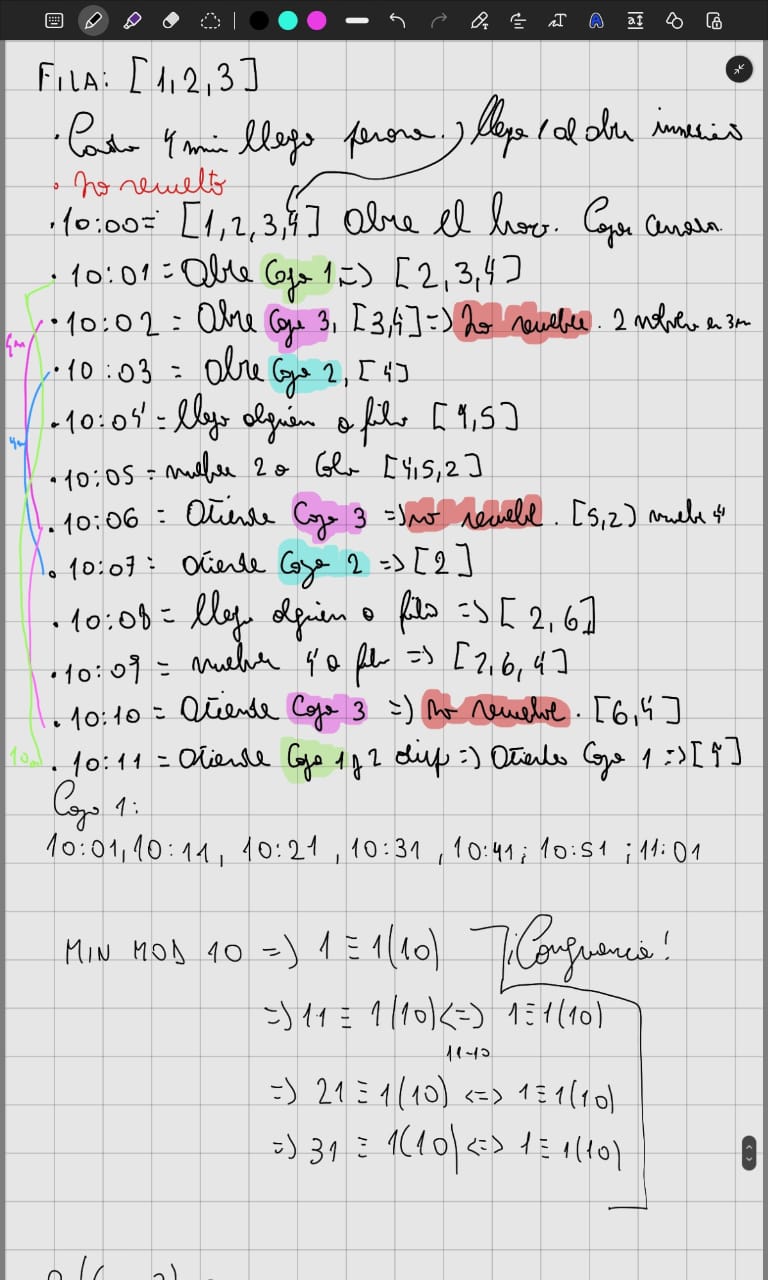 FILA: [1,2,3]
· Cada 4 min llega persona.) llega 1 al abrir
· No resuelto
· 10:00 = [1,2,3,4] Abre el
· 10:01 = Abre Caja 1, => [2,3,4]
· 10:02 = Abre Caja 3, [3,4] => No resuelve. 2 vuelve en 3m
4m
· 10:03 = Abre Caja 2, [4]
· 10:04 = llega alguien a fila [4,5]
4m
· 10:05 = vuelve 2 a cola [4,5,2]
· 10:06 = Atiende Caja 3 => no resuelve. [5,2] vuelve 4
· 10:07 = atiende Caja 2 => [2]
· 10:08 = llega alguien a fila => [2,6]
· 10:09 = vuelve 4 a fila => [2,6,4]
· 10:10 = Atiende Caja 3 => No resuelve. [6,4]
10m
· 10:11 = Atiende Caja 1 y 2 disp => Atiende Caja 1 => [4]
Caja 1:
10:01, 10:11, 10:21, 10:31, 10:41; 10:51; 11:01
MIN MOD 10 => 1 ≡ 1(10) ¡Congruencia!
=> 11 ≡ 1(10) <=> 1 ≡ 1(10)
11-10
=> 21 ≡ 1(10) <=> 1 ≡ 1(10)
=> 31 ≡ 1(10) <=> 1 ≡ 1(10)